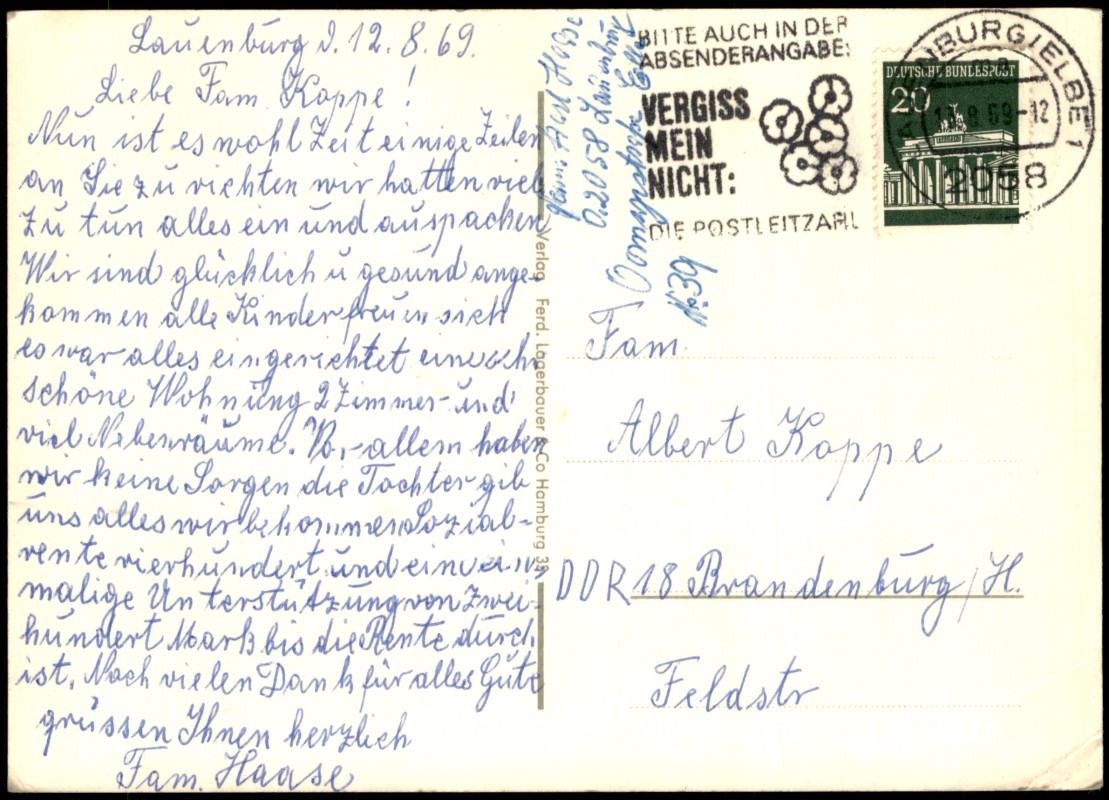 Lauenburg d. 12.8.69.
Liebe Fam. Koppe!
Nun ist es wohl Zeit einige Zeilen
an Sie zu richten wir hatten viel
zu tun alles ein und auspacken
Wir sind glücklich u gesund ange-
kommen alle Kinder freuen sich
es war alles eingerichtet eine sehr
schöne Wohnung 2 Zimmer- und
viel Nebenräume. Vor allem haben
wir keine Sorgen die Tochter gib
uns alles wir bekommen Sozial-
rente vierhundert und eine ein
malige Unterstützung von zwei-
hundert Mark bis die Rente durch
ist. Noch vielen Dank für alles Gute
grüssen Ihnen herzlich
Fam. Haase
D. 2058 Lauenburg
Verlag Ferd. Lagerbauer & Co Hamburg 39
BITTE AUCH IN DER
ABSENDERANGABE:
VERGISS
MEIN
NICHT:
DIE POSTLEITZAHL
LAUENBURG/ELBE 1
69-12
2058
DEUTSCHE BUNDESPOST
20
Fam.
Albert Koppe
DDR 18 Brandenburg/H.
Feldstr